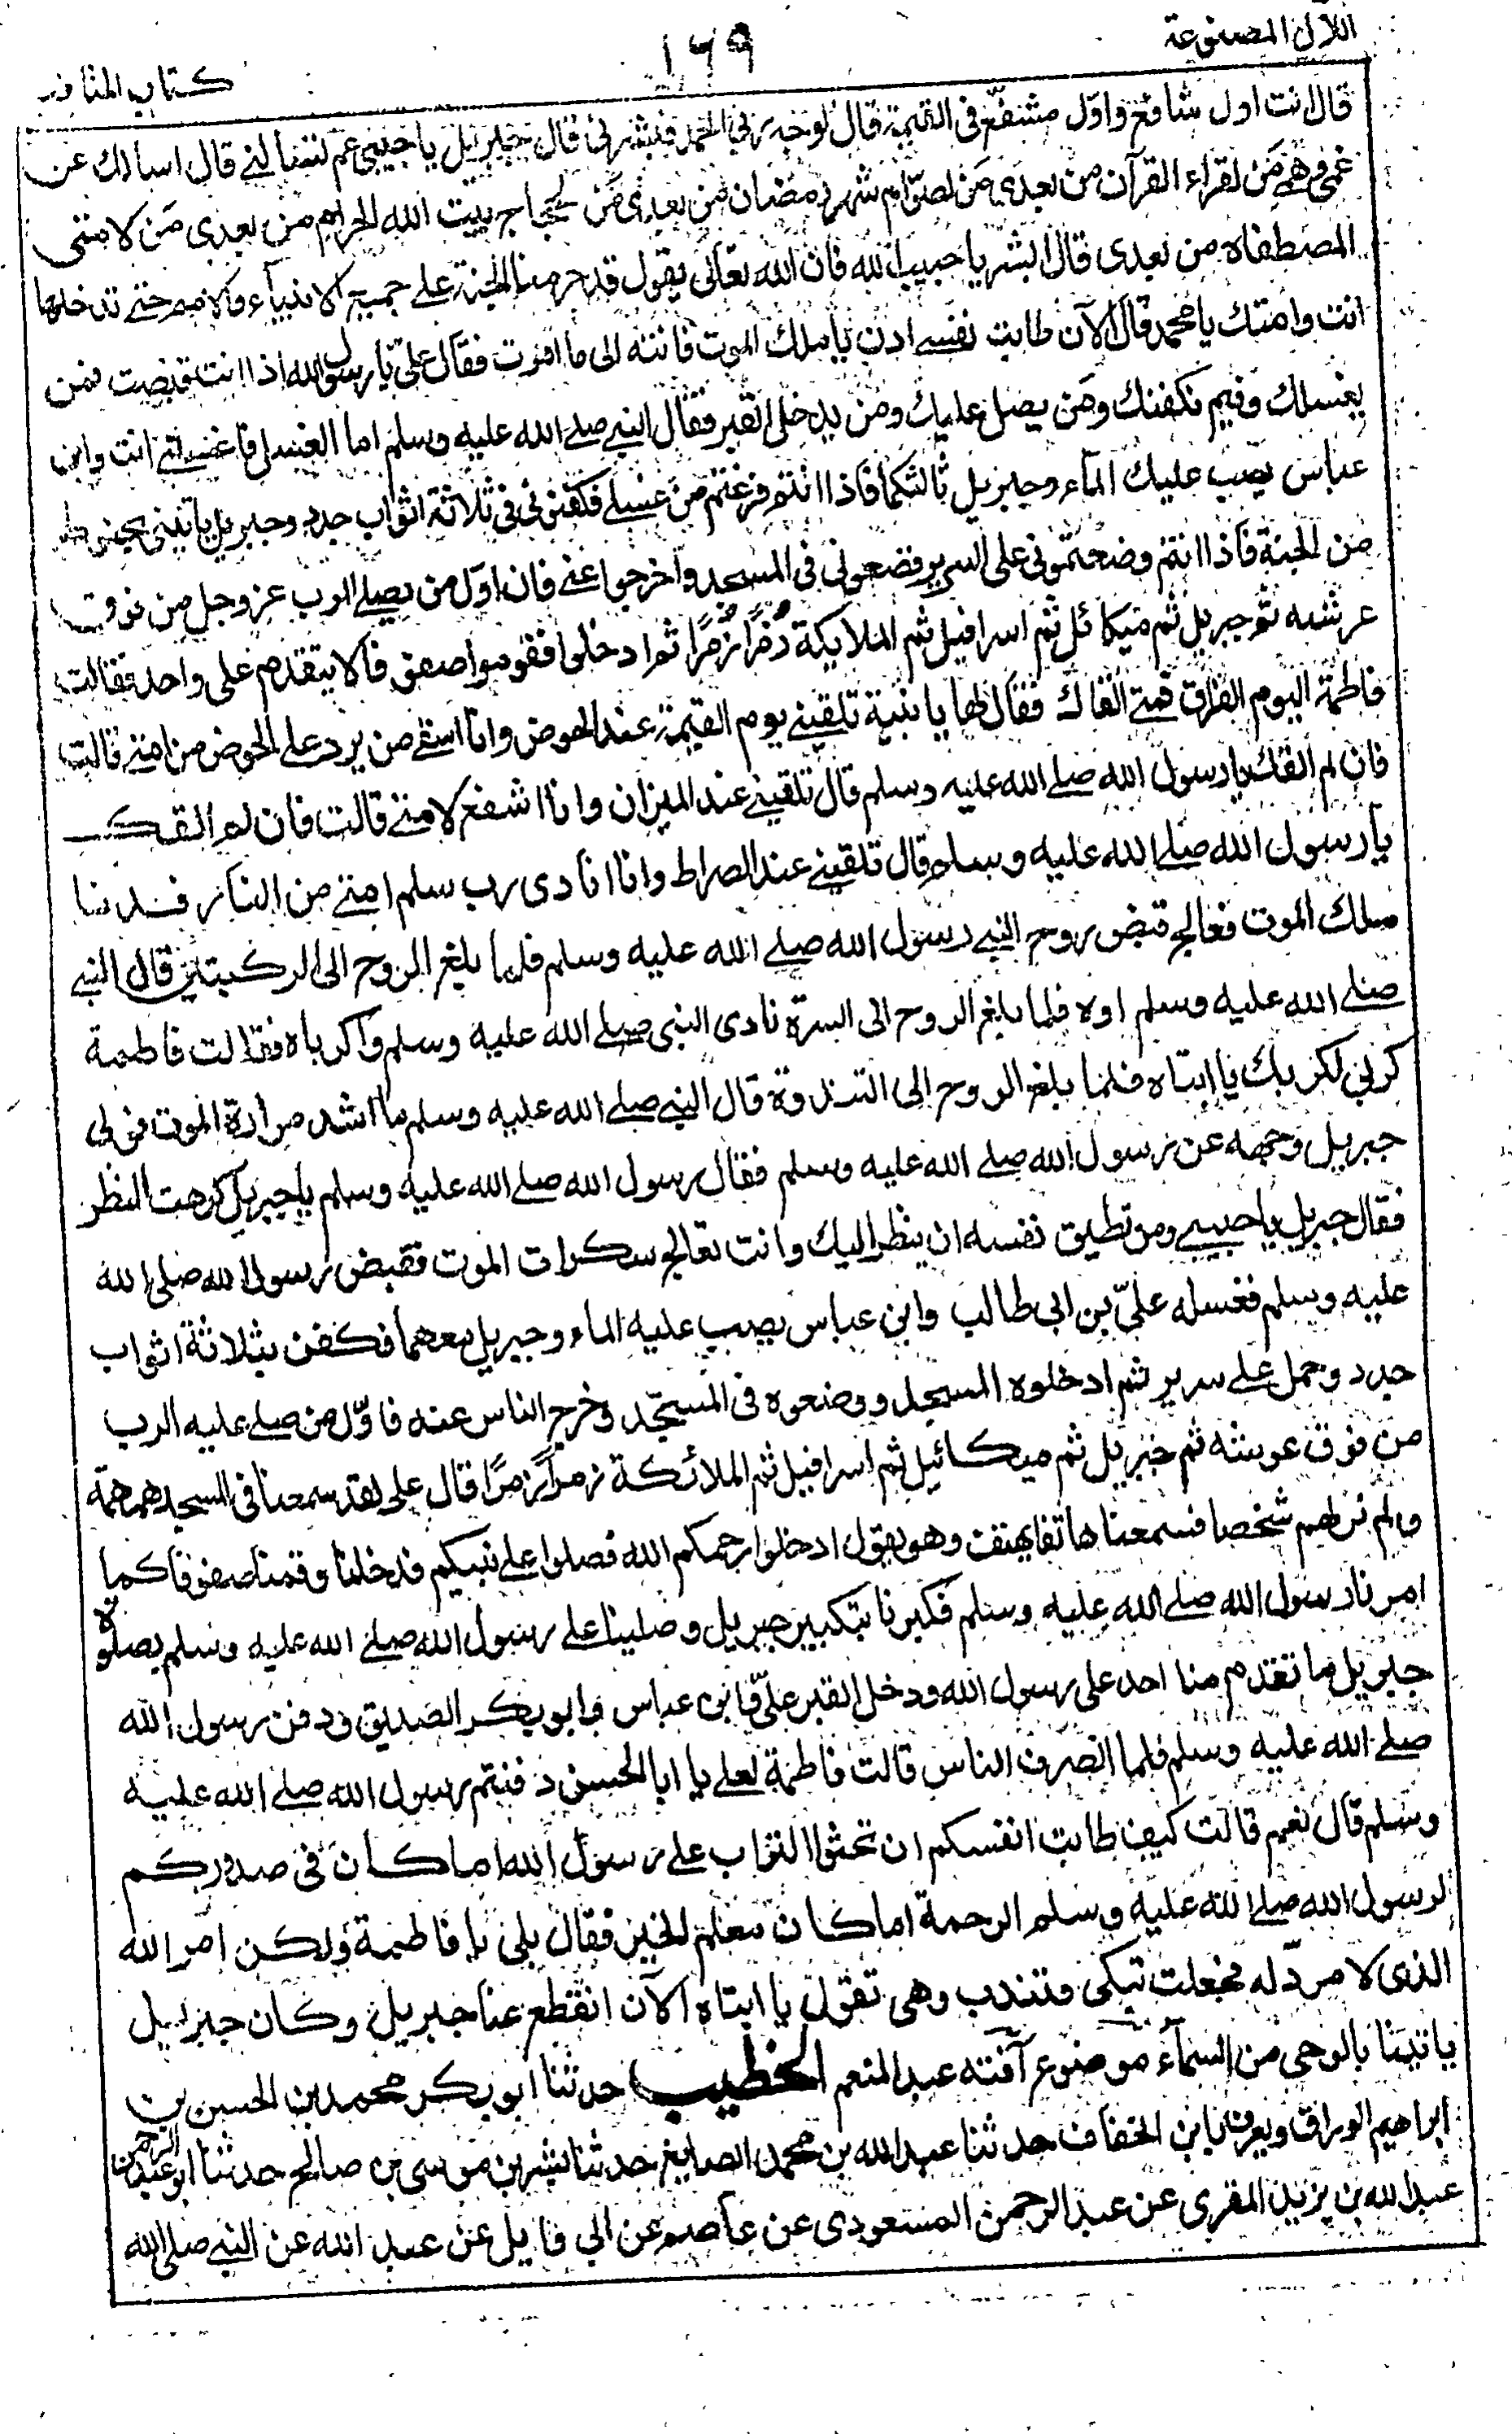 اللآلي المصنوعة
١٦٩
كتاب المناقب
قال انت اول شافع واول مشفع فى القيمة قال لوجه ربي الحمد فبشرنى قال جبريل يا حبيبي عم تسألني قال اسألك عن
غمى وهمي من لقراء القرآن من بعدى من لصوام شهر رمضان من بعدى من لحجاج بيت الله الحرام من بعدى من لامتى
المصطفاة من بعدى قال ابشر يا حبيب الله فان الله تعالى يقول قد حرمت الجنة على جميع الانبياء والامم حتى تدخلها
انت وامتك يا محمد قال الآن طابت نفسي ادن يا ملك الموت فانته الى ما امرت فقال علي يا رسول الله اذا انت قبضت فمن
يغسلك وفيم نكفنك ومن يصل عليك ومن يدخل القبر فقال النبي صلى الله عليه وسلم اما الغسل فاغسلني انت وابن
عباس يصب عليك الماء وجبريل ثالثكما فاذا انتم فرغتم من غسلي فكفنونى فى ثلاثة اثواب جدد وجبريل ياتينى بحنوط
من الجنة فاذا انتم وضعتمونى على السرير فضعونى فى المسجد واخرجوا عني فان اول من يصلي الرب عز وجل من فوق
عرشه ثم جبريل ثم ميكائل ثم اسرافيل ثم الملايكة زمرا زمرا ثم ادخلوا فقوموا صفوفا لا يتقدم على واحد فقالت
فاطمة اليوم الفراق فمتى القاك فقال لها يا بنية تلقيني يوم القيمة عند الحوض وانا اسقي من يرد علي الحوض من امتي قالت
فان لم القك يا رسول الله صلى الله عليه وسلم قال تلقيني عند الميزان وانا اشفع لامتي قالت فان لم القك
يا رسول الله صلى الله عليه وسلم قال تلقيني عند الصراط وانا انادى رب سلم امتي من النار فدنا
ملك الموت فعالج قبض روح النبي رسول الله صلى الله عليه وسلم فلما بلغ الروح الى الركبتين قال النبي
صلى الله عليه وسلم اوه فلما بلغ الروح الى السرة نادى النبى صلى الله عليه وسلم واكرباه فقالت فاطمة
كربى لكربك يا ابتاه فلما بلغ الروح الى الثندوة قال النبي صلى الله عليه وسلم ما اشد مرارة الموت فولى
جبريل وجهه عن رسول الله صلى الله عليه وسلم فقال رسول الله صلى الله عليه وسلم يا جبريل كرهت النظر
فقال جبريل يا حبيبي ومن تطيق نفسه ان ينظر اليك وانت تعالج سكرات الموت فقبض رسول الله صلى الله
عليه وسلم فغسله علي بن ابى طالب وابن عباس يصب عليه الماء وجبريل معهما فكفن بثلاثة اثواب
جدد وحمل على سرير ثم ادخلوه المسجد ووضعوه فى المسجد وخرج الناس عنه فاول من صلى عليه الرب
من فوق عرشه ثم جبريل ثم ميكائيل ثم اسرافيل ثم الملائكة زمرا زمرا قال على لقد سمعنا فى المسجد همهمة
ولم نر لهم شخصا فسمعنا هاتفا يهتف وهو يقول ادخلوا رحمكم الله فصلوا على نبيكم فدخلنا وقمنا صفوفا كما
امرنا رسول الله صلى الله عليه وسلم فكبرنا بتكبير جبريل وصلينا على رسول الله صلى الله عليه وسلم بصلوة
جبريل ما تقدم منا احد على رسول الله ودخل القبر علي وابن عباس وابو بكر الصديق ودفن رسول الله
صلى الله عليه وسلم فلما انصرف الناس قالت فاطمة لعلي يا ابا الحسن دفنتم رسول الله صلى الله عليه
وسلم قال نعم قالت كيف طابت انفسكم ان تحثوا التراب على رسول الله اما كان فى صدوركم
لرسول الله صلى الله عليه وسلم الرحمة اما كان معلم الخير فقال بلى يا فاطمة ولكن امر الله
الذى لا مرد له فجعلت تبكى وتندب وهى تقول يا ابتاه الآن انقطع عنا جبريل وكان جبريل
ياتينا بالوحى من السماء موضوع آفته عبد المنعم الخطيب حدثنا ابو بكر محمد بن الحسن بن
ابراهيم الوراق ويعرف بابن الخفاف حدثنا عبد الله بن محمد الصايغ حدثنا بشر بن موسى بن صالح حدثنا ابو عبد الرحمن
عبد الله بن يزيد المقرى عن عبد الرحمن المسعودى عن عاصم عن ابي وايل عن عبد الله عن النبي صلى الله